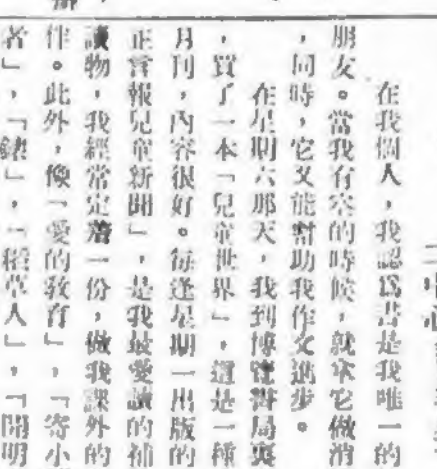 在我個人，我認爲書是我唯一的
朋友。當我有空的時候，就拿它做消
，同時，它又能幫助我作文進步。
在星期六那天，我到博覽書局裏
，買了一本「兒童世界」，這是一種
月刊，內容很好。每逢星期一出版的
正言報兒童新聞」，是我最愛讀的補
讀物，我經常定着一份，做我課外的
伴。此外，像「愛的敎育」，「寄小
者」，「錶」，「稻草人」，「開明